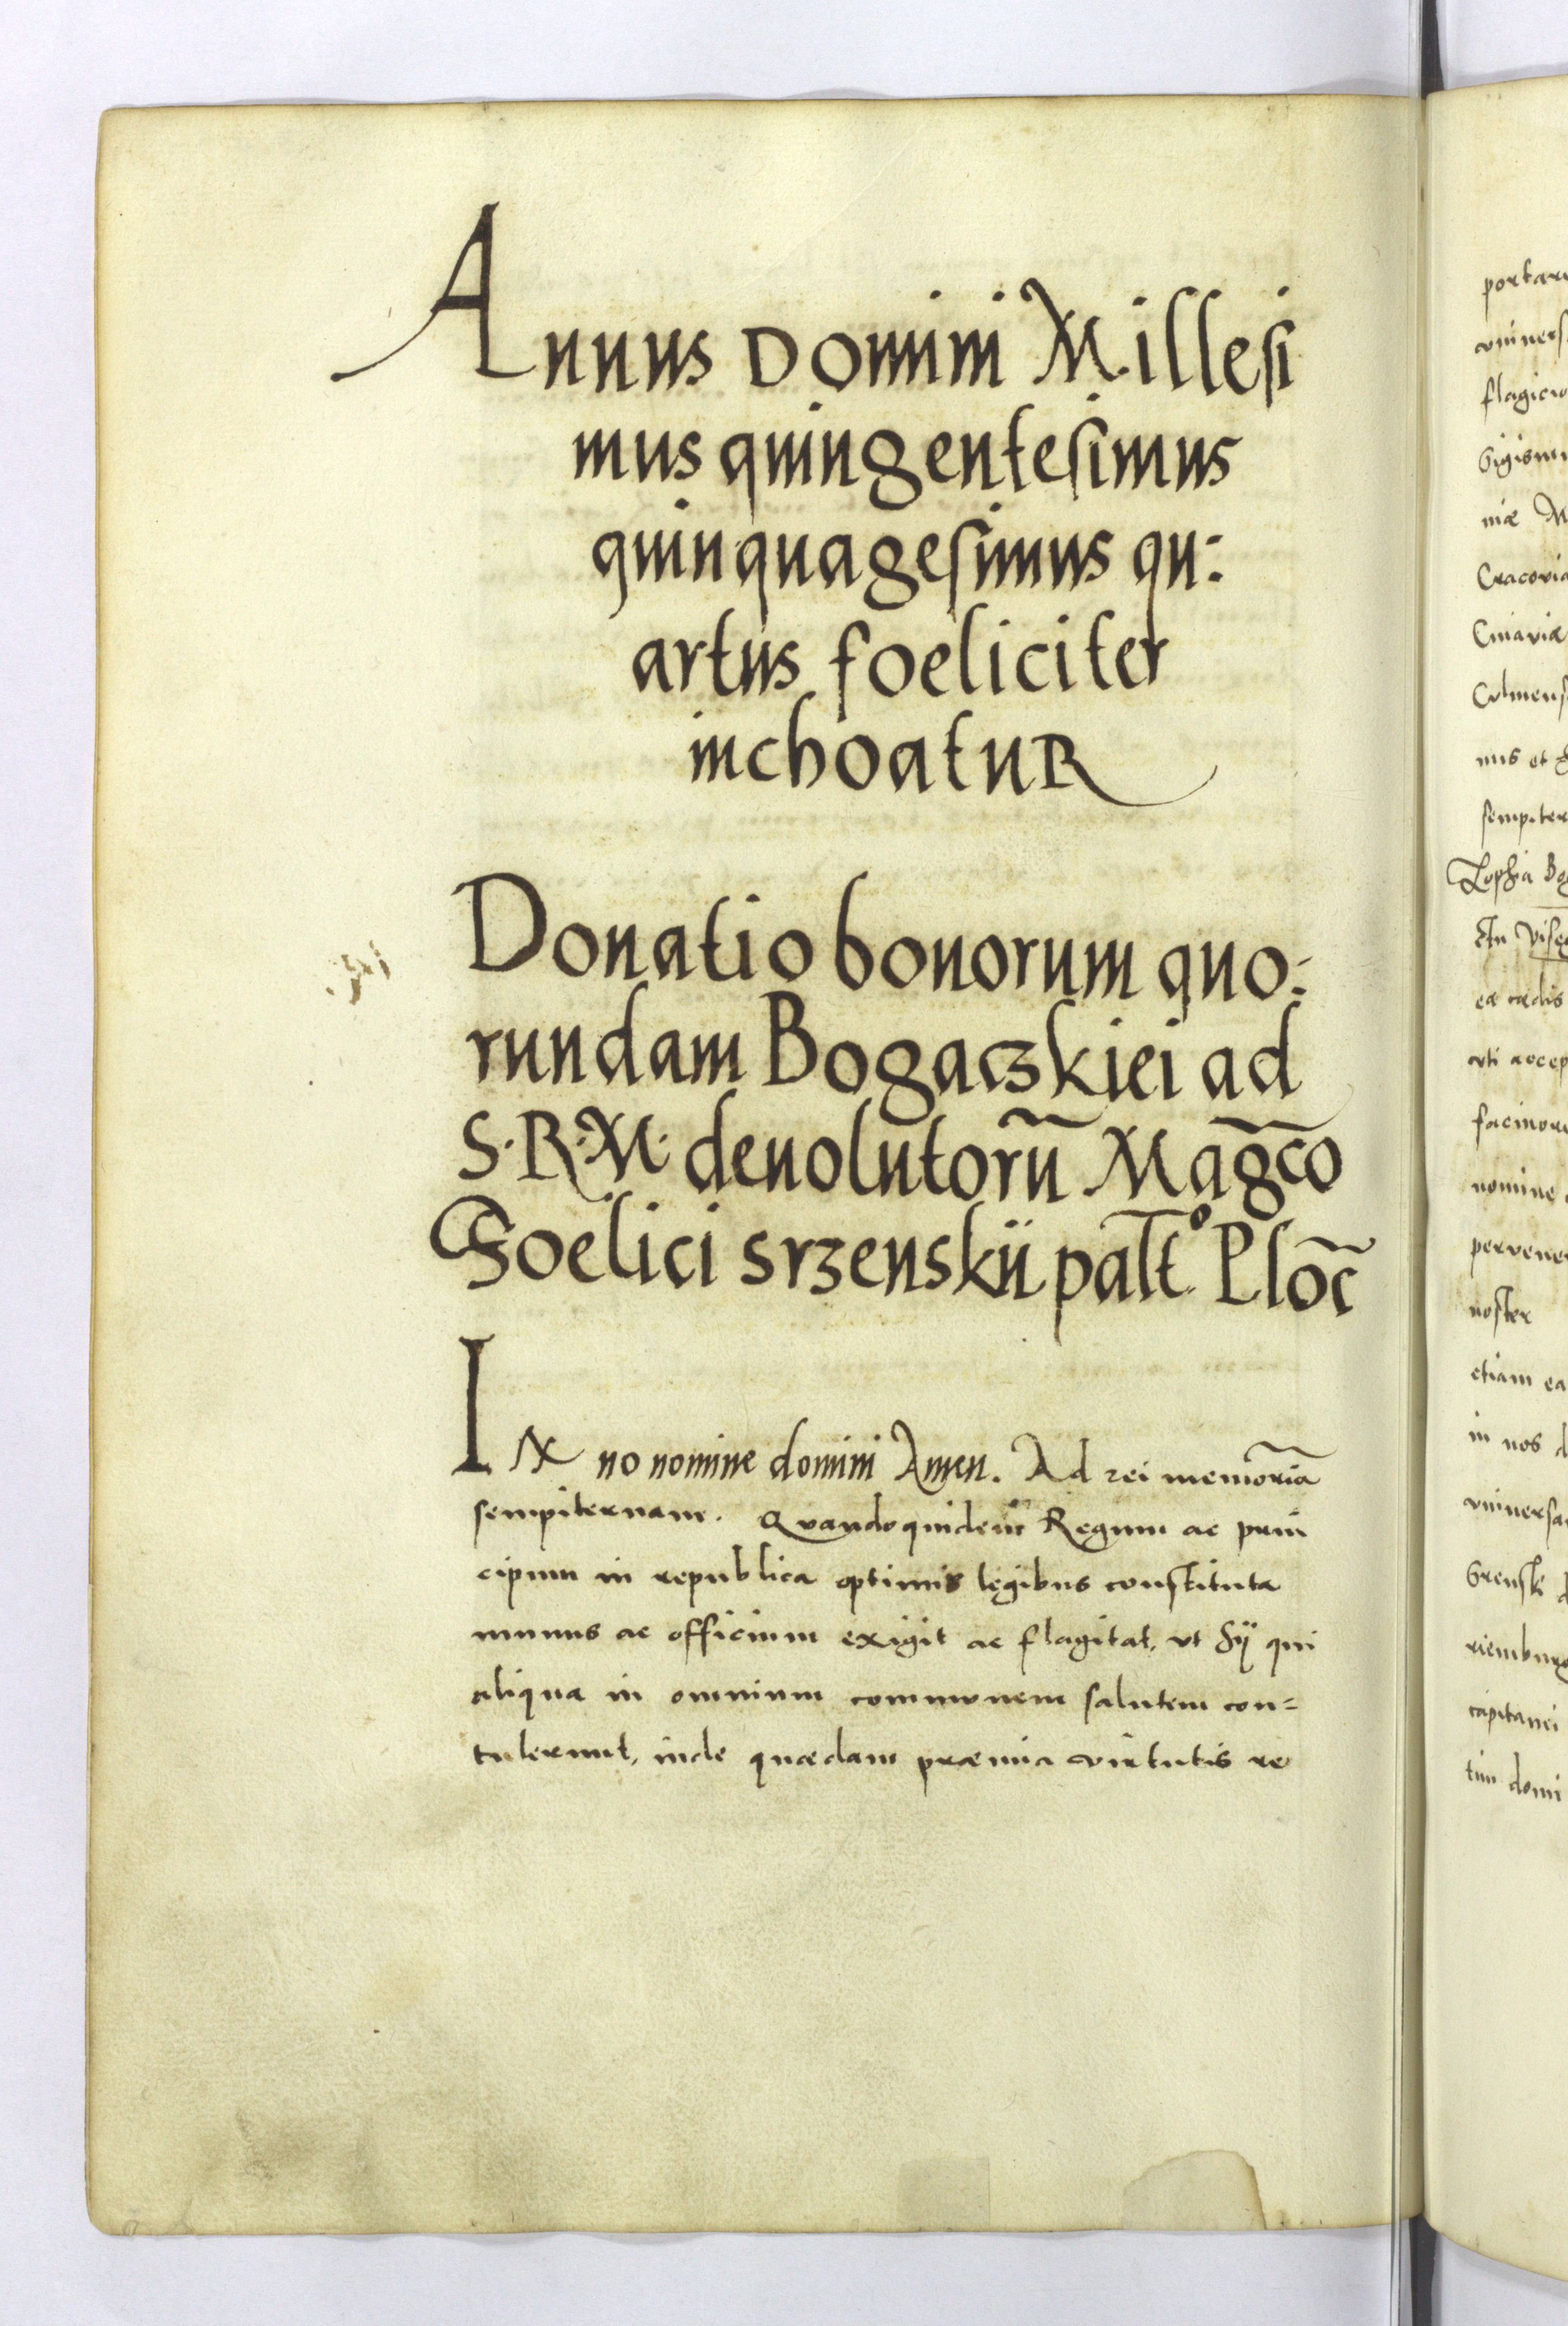 Annus Domini Millesi
mus quingentesimus
quinquagesimus qu:
artus foeliciter
inchoatuR
Donatio bonorum quo:
rundam Bogaczkiei ad
S. R. M. deuolutorū Magc̄o
Foelici srzenskii palt̄o Ploc̄
IN no nomine domini Amen. Ad rei memoriā
sempiternam. Qvandoquidem Regum ac prin
cipum in republica optimis legibus constituta
munus ac officium exigit ac flagitat, vt hij qui
aliqua in omnium communem salutem con=
tulerunt, inde quædam præmia virtutis re
portar
vniuers
flagicio
Sigism
niæ M
Cracovia
Cuiaviæ
Culmens
nus et
sempiter
Zophia Bo
ea cædis
vti accep
facinor
nomine
pervene
noster
etiam ea
in nos d
vniuersa
Srenski
riemburg
capitanei
tim domi